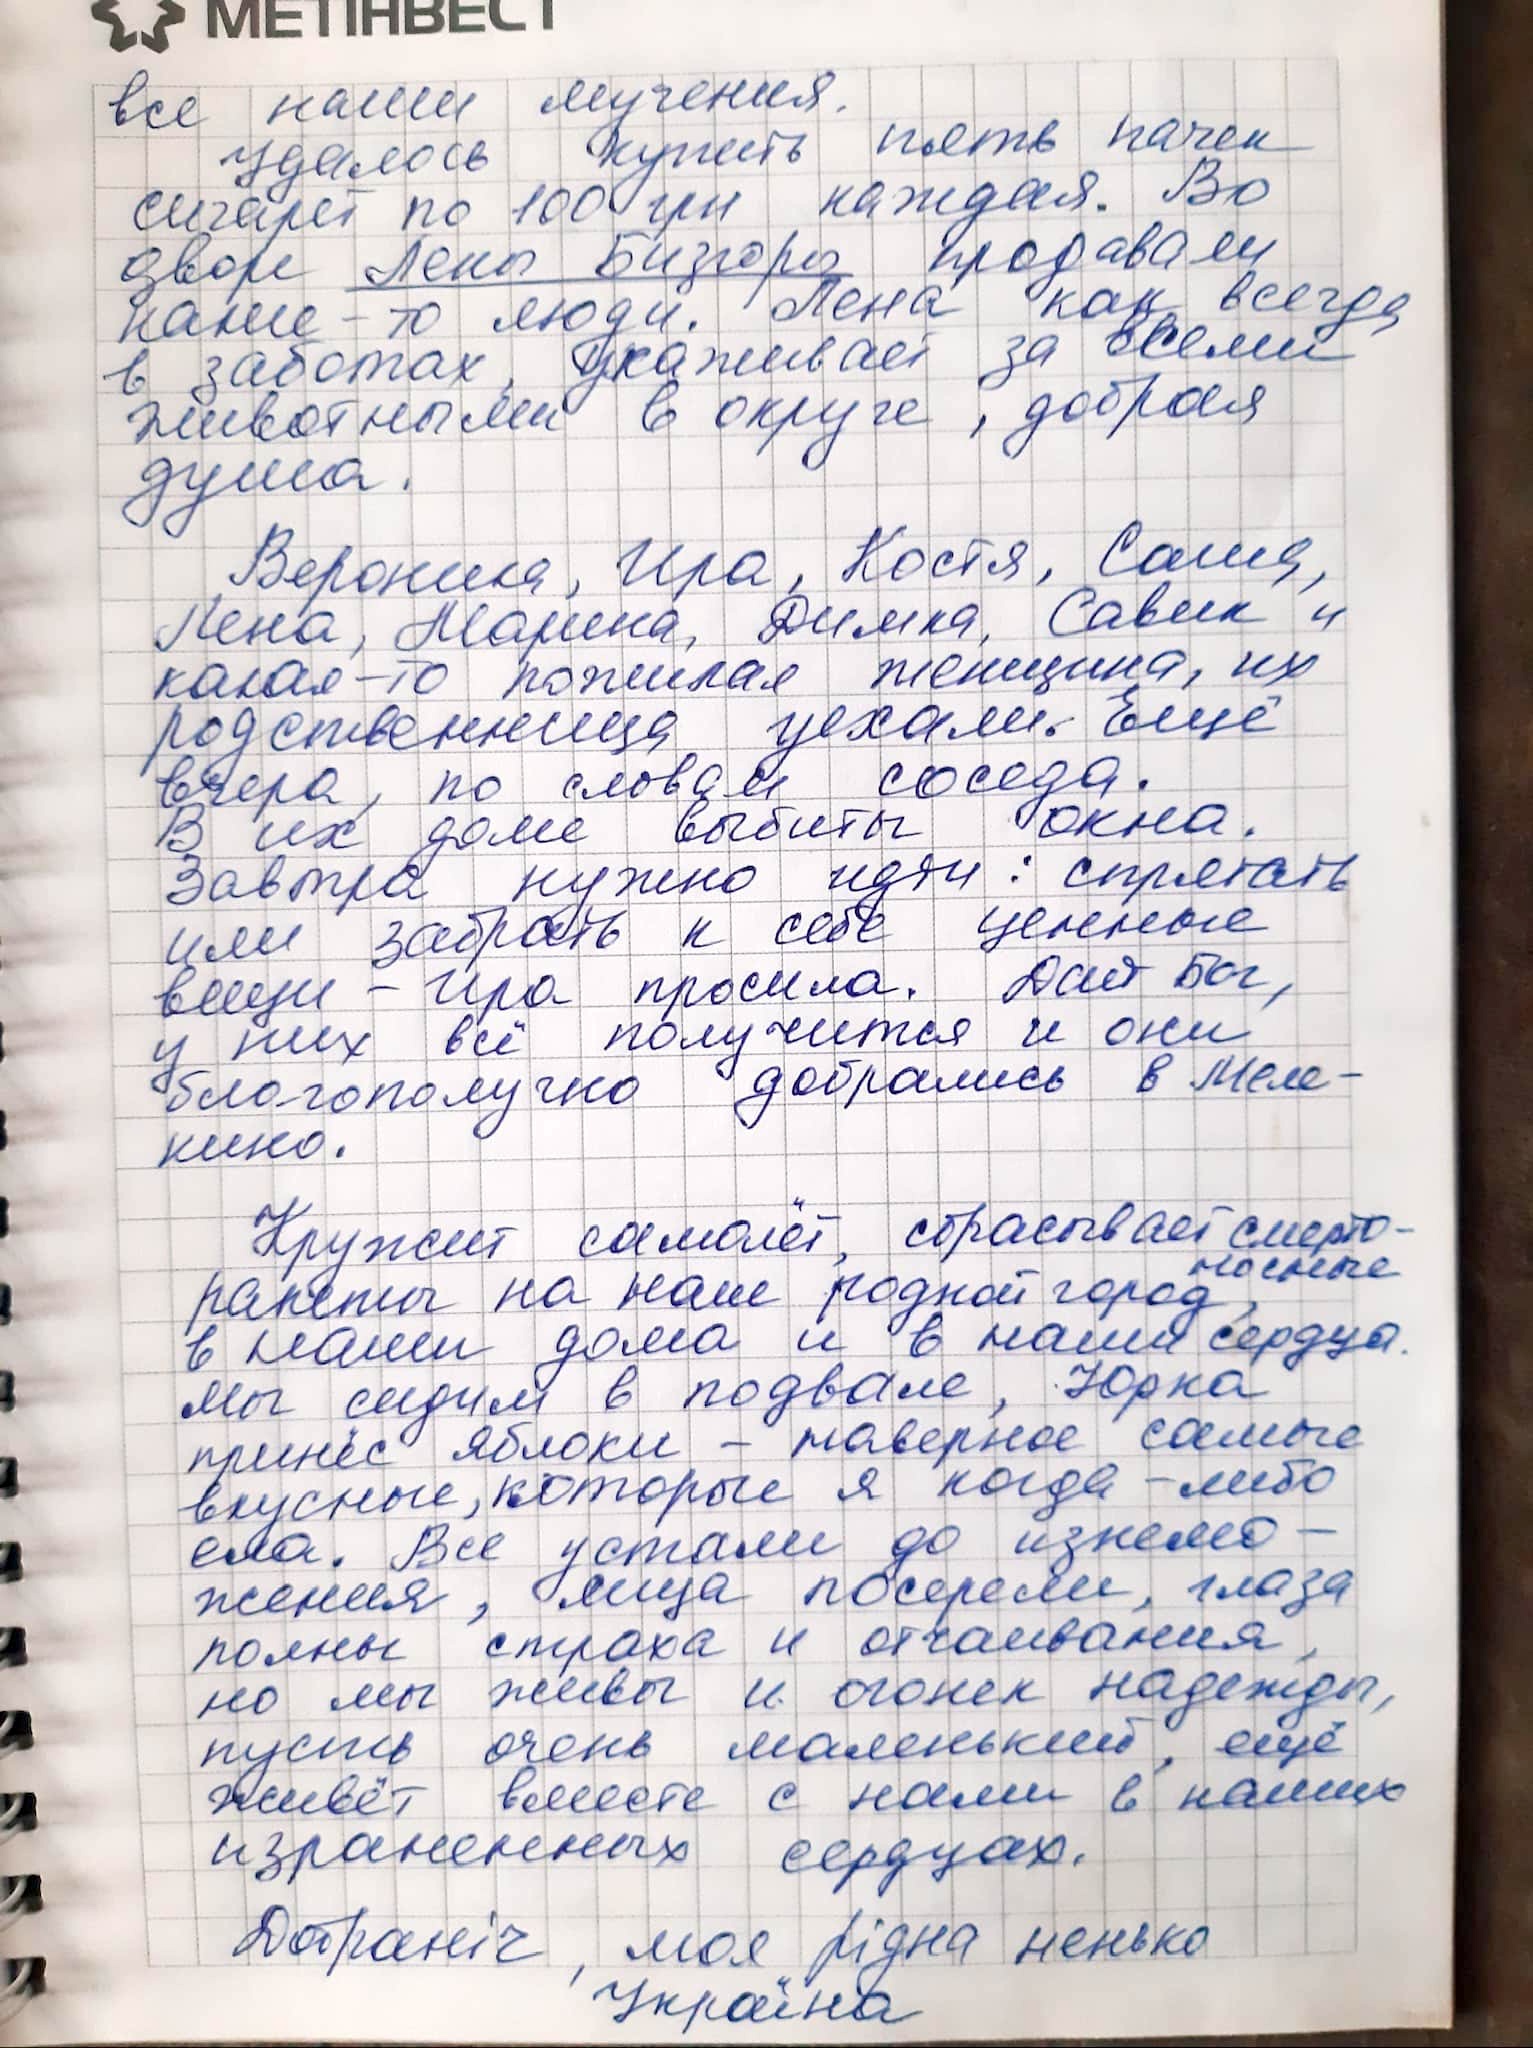 МЕТІНВЕСТ
все наши мучения.
Удалось купить пять пачек
сигарет по 100 грн каждая. Во
дворе Лены Бизгоры продавали
какие-то люди. Лена как всегда
в заботах, ухаживает за всеми
животными в округе, добрая
душа.
Вероника, Ира, Костя, Саша,
Лена, Марина, Димка, Савик и
какая-то пожилая женщина, их
родственница уехали. Ещё
вчера, по словам соседа.
В их доме выбиты окна.
Завтра нужно идти: спрятать
или забрать к себе ценные
вещи - Ира просила. Дай Бог,
у них всё получится и они
благополучно добрались в Меле-
кино.
Кружит самолёт, сбрасывает смерто-
носные
ракеты на наш родной город,
в наши дома и в наши сердца.
Мы сидим в подвале, Юрка
принёс яблоки - наверное самые
вкусные, которые я когда-либо
ела. Все устали до изнемо-
жения, лица посерели, глаза
полны страха и отчаивания,
но мы живы и огонек надежды,
пусть очень маленький, ещё
живёт вместе с нами в наших
израненных сердцах.
Добраніч, моя рідна ненько
Україна